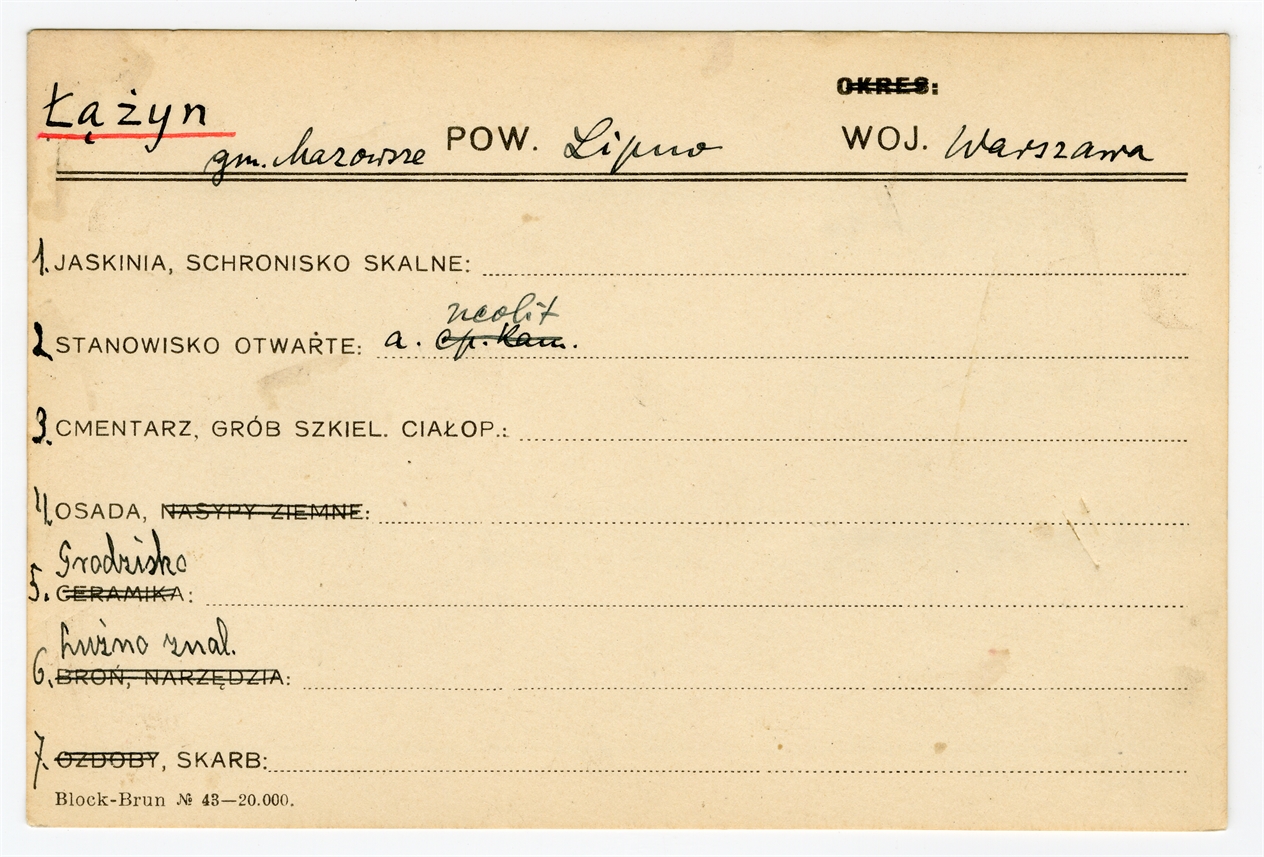 OKRES:
Łążyn
gm. Mazowsze POW. Lipno WOJ. Warszawa
1. JASKINIA, SCHRONISKO SKALNE:
neolit
2. STANOWISKO OTWARTE: a. ep. kam.
3. CMENTARZ, GRÓB SZKIEL. CIAŁOP.:
4. OSADA, NASYPY ZIEMNE:
Grodzisko
5. CERAMIKA:
Luźno znal.
6. BROŃ, NARZĘDZIA:
7. OZDOBY, SKARB:
Block-Brun № 43—20.000.